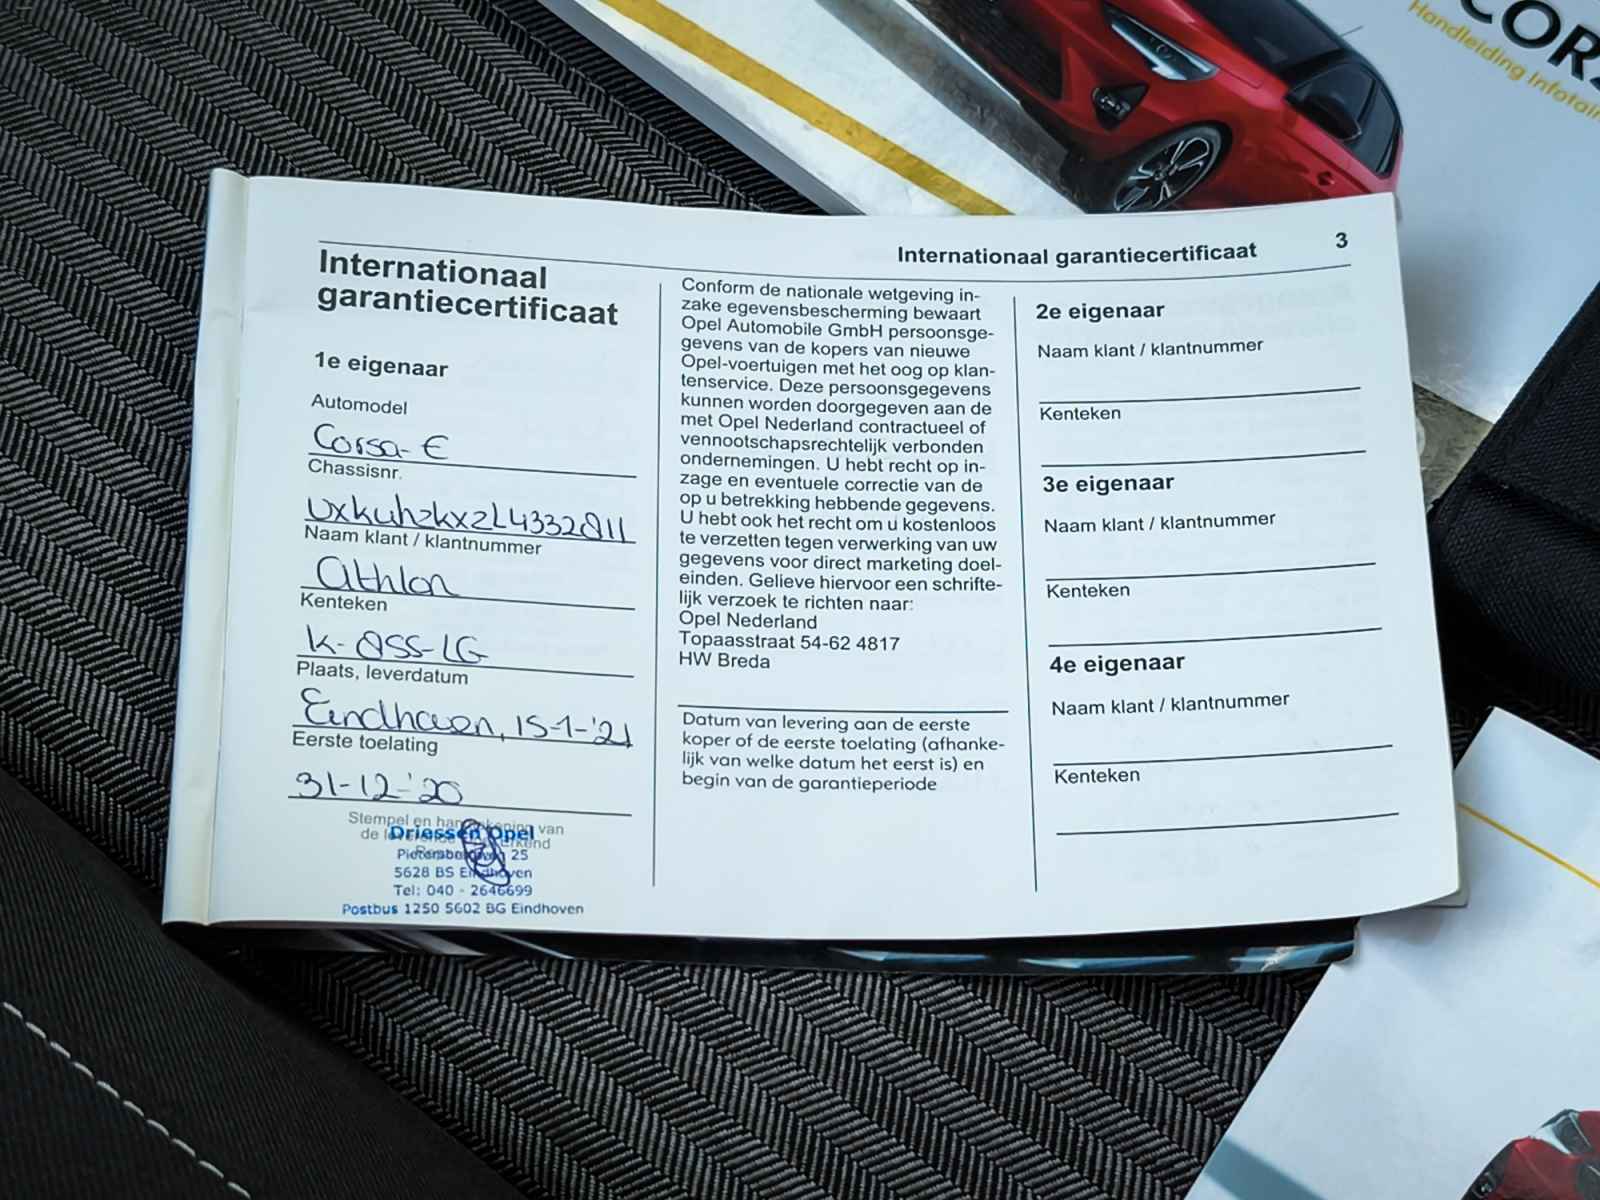 COR
Handleiding Infotain
Internationaal garantiecertificaat 3
Internationaal
garantiecertificaat
1e eigenaar
Automodel
Corsa-E
Chassisnr.
Naam klant / klantnummer
Athlon
Kenteken
Plaats, leverdatum
Eindhoven, 15-1-'21
Eerste toelating
31-12-'20
Stempel en van
de
Driessen Opel
25
5628 BS Eindhoven
Tel: 040 - 2646699
Postbus 1250 5602 BG Eindhoven
Conform de nationale wetgeving in-
zake egevensbescherming bewaart
Opel Automobile GmbH persoonsge-
gevens van de kopers van nieuwe
Opel-voertuigen met het oog op klan-
tenservice. Deze persoonsgegevens
kunnen worden doorgegeven aan de
met Opel Nederland contractueel of
vennootschapsrechtelijk verbonden
ondernemingen. U hebt recht op in-
zage en eventuele correctie van de
op u betrekking hebbende gegevens.
U hebt ook het recht om u kostenloos
te verzetten tegen verwerking van uw
gegevens voor direct marketing doel-
einden. Gelieve hiervoor een schrifte-
lijk verzoek te richten naar:
Opel Nederland
Topaasstraat 54-62 4817
HW Breda
Datum van levering aan de eerste
koper of de eerste toelating (afhanke-
lijk van welke datum het eerst is) en
begin van de garantieperiode
2e eigenaar
Naam klant / klantnummer
Kenteken
3e eigenaar
Naam klant / klantnummer
Kenteken
4e eigenaar
Naam klant / klantnummer
Kenteken